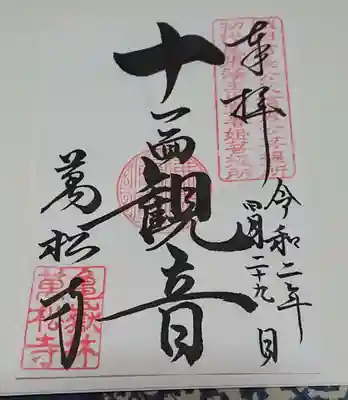 奉拝
令和二年
四月二十九日
十一面観音
萬松寺
亀嶽林
萬松寺